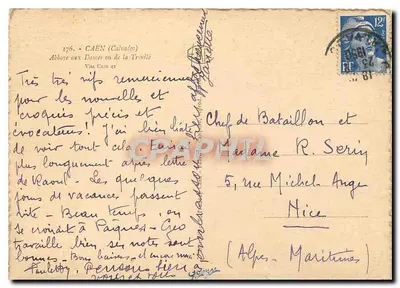 176. - CAEN (Calvados)
Abbaye aux Dames ou de la Trinité
Très très vifs remerciements
pour les nouvelles et
croquis précis et
évocateurs! J'ai bien hâte
de voir tout cela. Faire
plus longuement après lettre
de Raoul. Les quelques
jours de vacances passent
vite - Beau temps, on
se croirait à Pâques - Geo
travaille bien, ses notes sont
bonnes - Bons baisers
Pensons bien
Chef de Bataillon et
Madame R. Serin
5, rue Michel-Ange
Nice
(Alpes-Maritimes)
12F